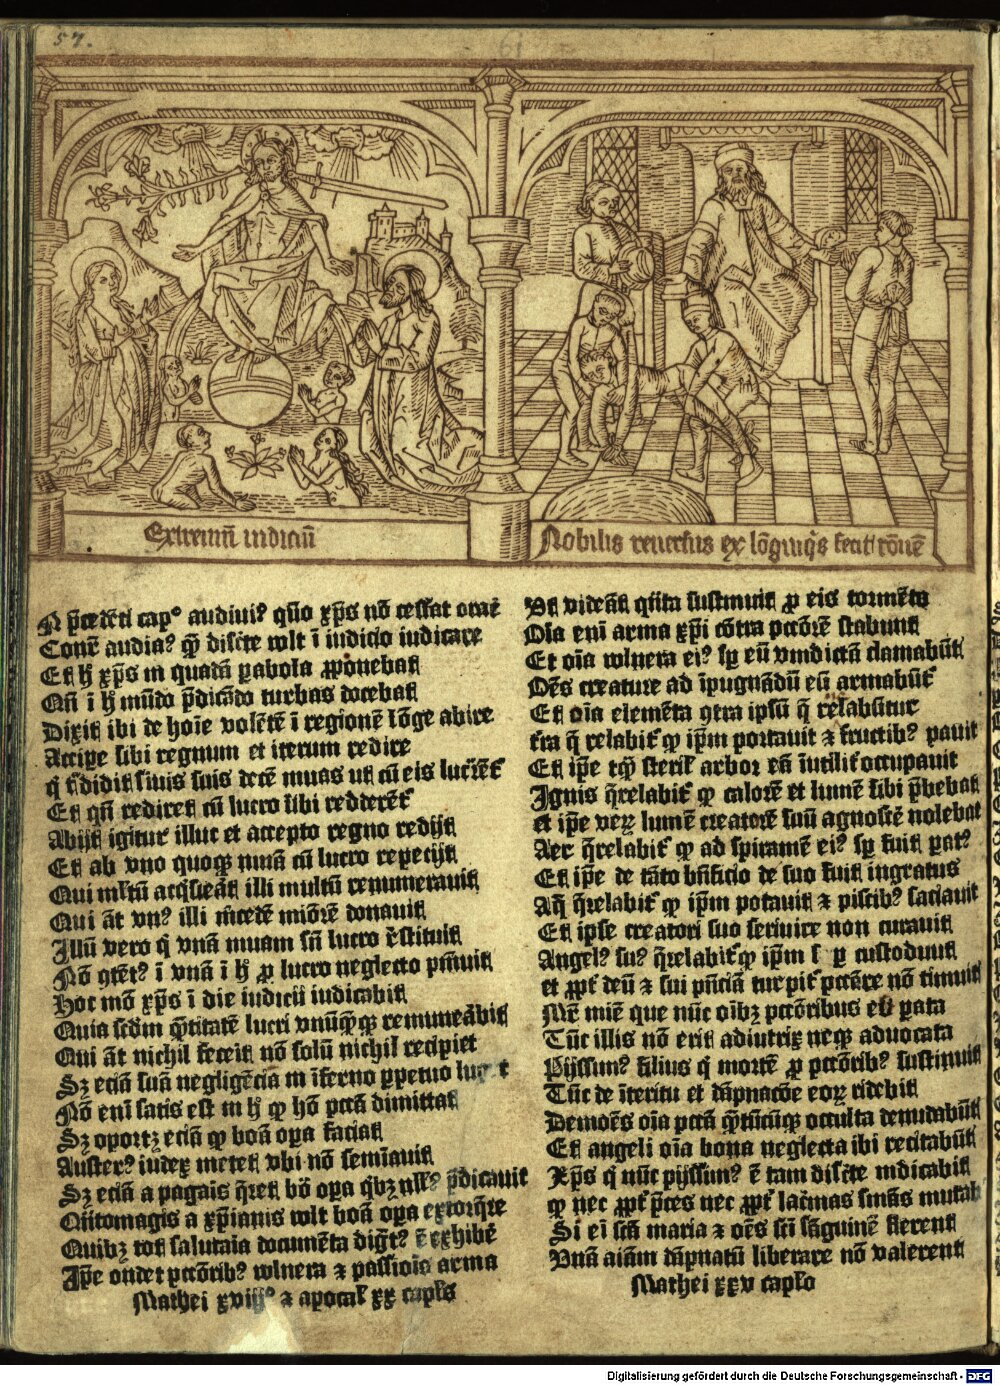 57.
Extremũ iudiciũ
Nobilis reuersus ex lõginq̃s fecit rõnẽ
N p̃cedẽti cap° audiui⁹ quõ xp̃s nõ cessat orar̃
Conẽ audia⁹ q̃ discr̃te wlt ĩ iudicio iudicare
Et h̃ xp̃s in quadã parabola proponebat
Qñ ĩ h̃ mũdo p̃dicãdo turbas docebat
Dixit ibi de hoĩe volẽtẽ ĩ regionẽ lõge abire
Accipe sibi regnum et iterum redire
q̃ t̃didit s̃uis suis decẽ mnas ut cũ eis luc̃rẽt᷑
Et qñ rediret cũ lucro sibi redderẽt᷑
Abijt igitur illuc et accepto regno redijt
Et ab vno quoq̃ mnã cũ lucro repecijt
Qui ml̃tũ acq̃sieãt illi multũ remunerauit
Qui ãt vn⁹ illi m̃cedẽ miõrẽ donauit
Illũ vero q̃ vnã mnam sñ lucro r̃stituit
Nõ 9tẽt⁹ ĩ vnã ĩ h̃ pro lucro neglecto pũiuit
Hoc mõ xp̃s ĩ die iudicii iudicabit
Quia scdm q̃titatẽ lucri vnũq̃q̃ remuneãbit
Qui ãt nichil fecerit nõ solũ nichil recipiet
Sꝫ eciã suã negligẽciã in ĩferno ppetuo
Nõ enĩ satis est in h̃ ꝙ hõ pctã dimittat
Sꝫ oportꝫ eciã ꝙ boã opa faciat
Auster⁹ iudex metet vbi nõ semĩauit
Sꝫ eciã a paganis q̃ret bõ opa q̃bꝫ null⁹ p̃dicauit
Q̃ntomagis a xp̃ianis wlt boã opa extorq̃re
Quibꝫ tot salutaia documẽta dig̃t⁹ ẽ exhibẽ
Ip̃e ondet pctõrib⁹ wlnera ⁊ passiõis arma
Mathei xviij° ⁊ apocal᷑ xx caplo
Vt videãt q̃ta sustinuit pro eis tormẽta
Oĩa enĩ arma xp̃i cõtra pctõrẽ stabunt
Et oĩa wlnera ei⁹ sup eũ vindictã clamabũt
Oẽs creature ad ĩpugnãdũ eũ armabũt᷑
Et oĩa elemẽta 9tra ipsũ q̃relabũtur
t̃ra q̃relabit᷑ ꝙ ip̃m portauit ⁊ fructib⁹ pauit
Et ip̃e tq̃ steril᷑ arbor eã ĩutilit᷑ occupauit
Ignis q̃relabit᷑ ꝙ calorẽ et lumẽ sibi p̃bebat
et ip̃e veꝝ lumẽ creatorẽ suũ agnoscẽ nolebat
Aer q̃relabit᷑ ꝙ ad spiramẽ ei⁹ sp fuit pat⁹
Et ip̃e de tãto bñficio de suo fuit ingratus
Aq̃ q̃relabit᷑ ꝙ ip̃m potauit ⁊ piscib⁹ saciauit
Et ipse creatori suo seruire non curauit
Angel⁹ su⁹ q̃relabit᷑ ꝙ ip̃m s p custodiuit
et propt᷑ deũ ⁊ sui p̃nciã turpit᷑ pctãre nõ timuit
Mr̃ mĩe que nũc oĩbꝫ pctõribus est pata
Tũc illis nõ erit adiutrix neq̃ aduocata
Pijssim⁹ filius q̃ mortẽ pro pctõrib⁹ sustinuit
Tũc de ĩteritu et dãpnacõe eoꝝ ridebit
Demoẽs oĩa pctã q̃tũcũq̃ occulta denudabũt
Et angeli oĩa bona neglecta ibi recitabũt
Xp̃s q̃ nũc pijssim⁹ ẽ tam discr̃te iudicabit
ꝙ nec propt᷑ p̃ces nec propt᷑ lac̃mas sniãs mutab
Si eĩ sctã maria ⁊ oẽs sc̃i sãguinẽ flerent
Vnã aiãm dãpnatũ liberare nõ valerent
Mathei xxv caplo
Digitalisierung gefördert durch die Deutsche Forschungsgemeinschaft - DFG